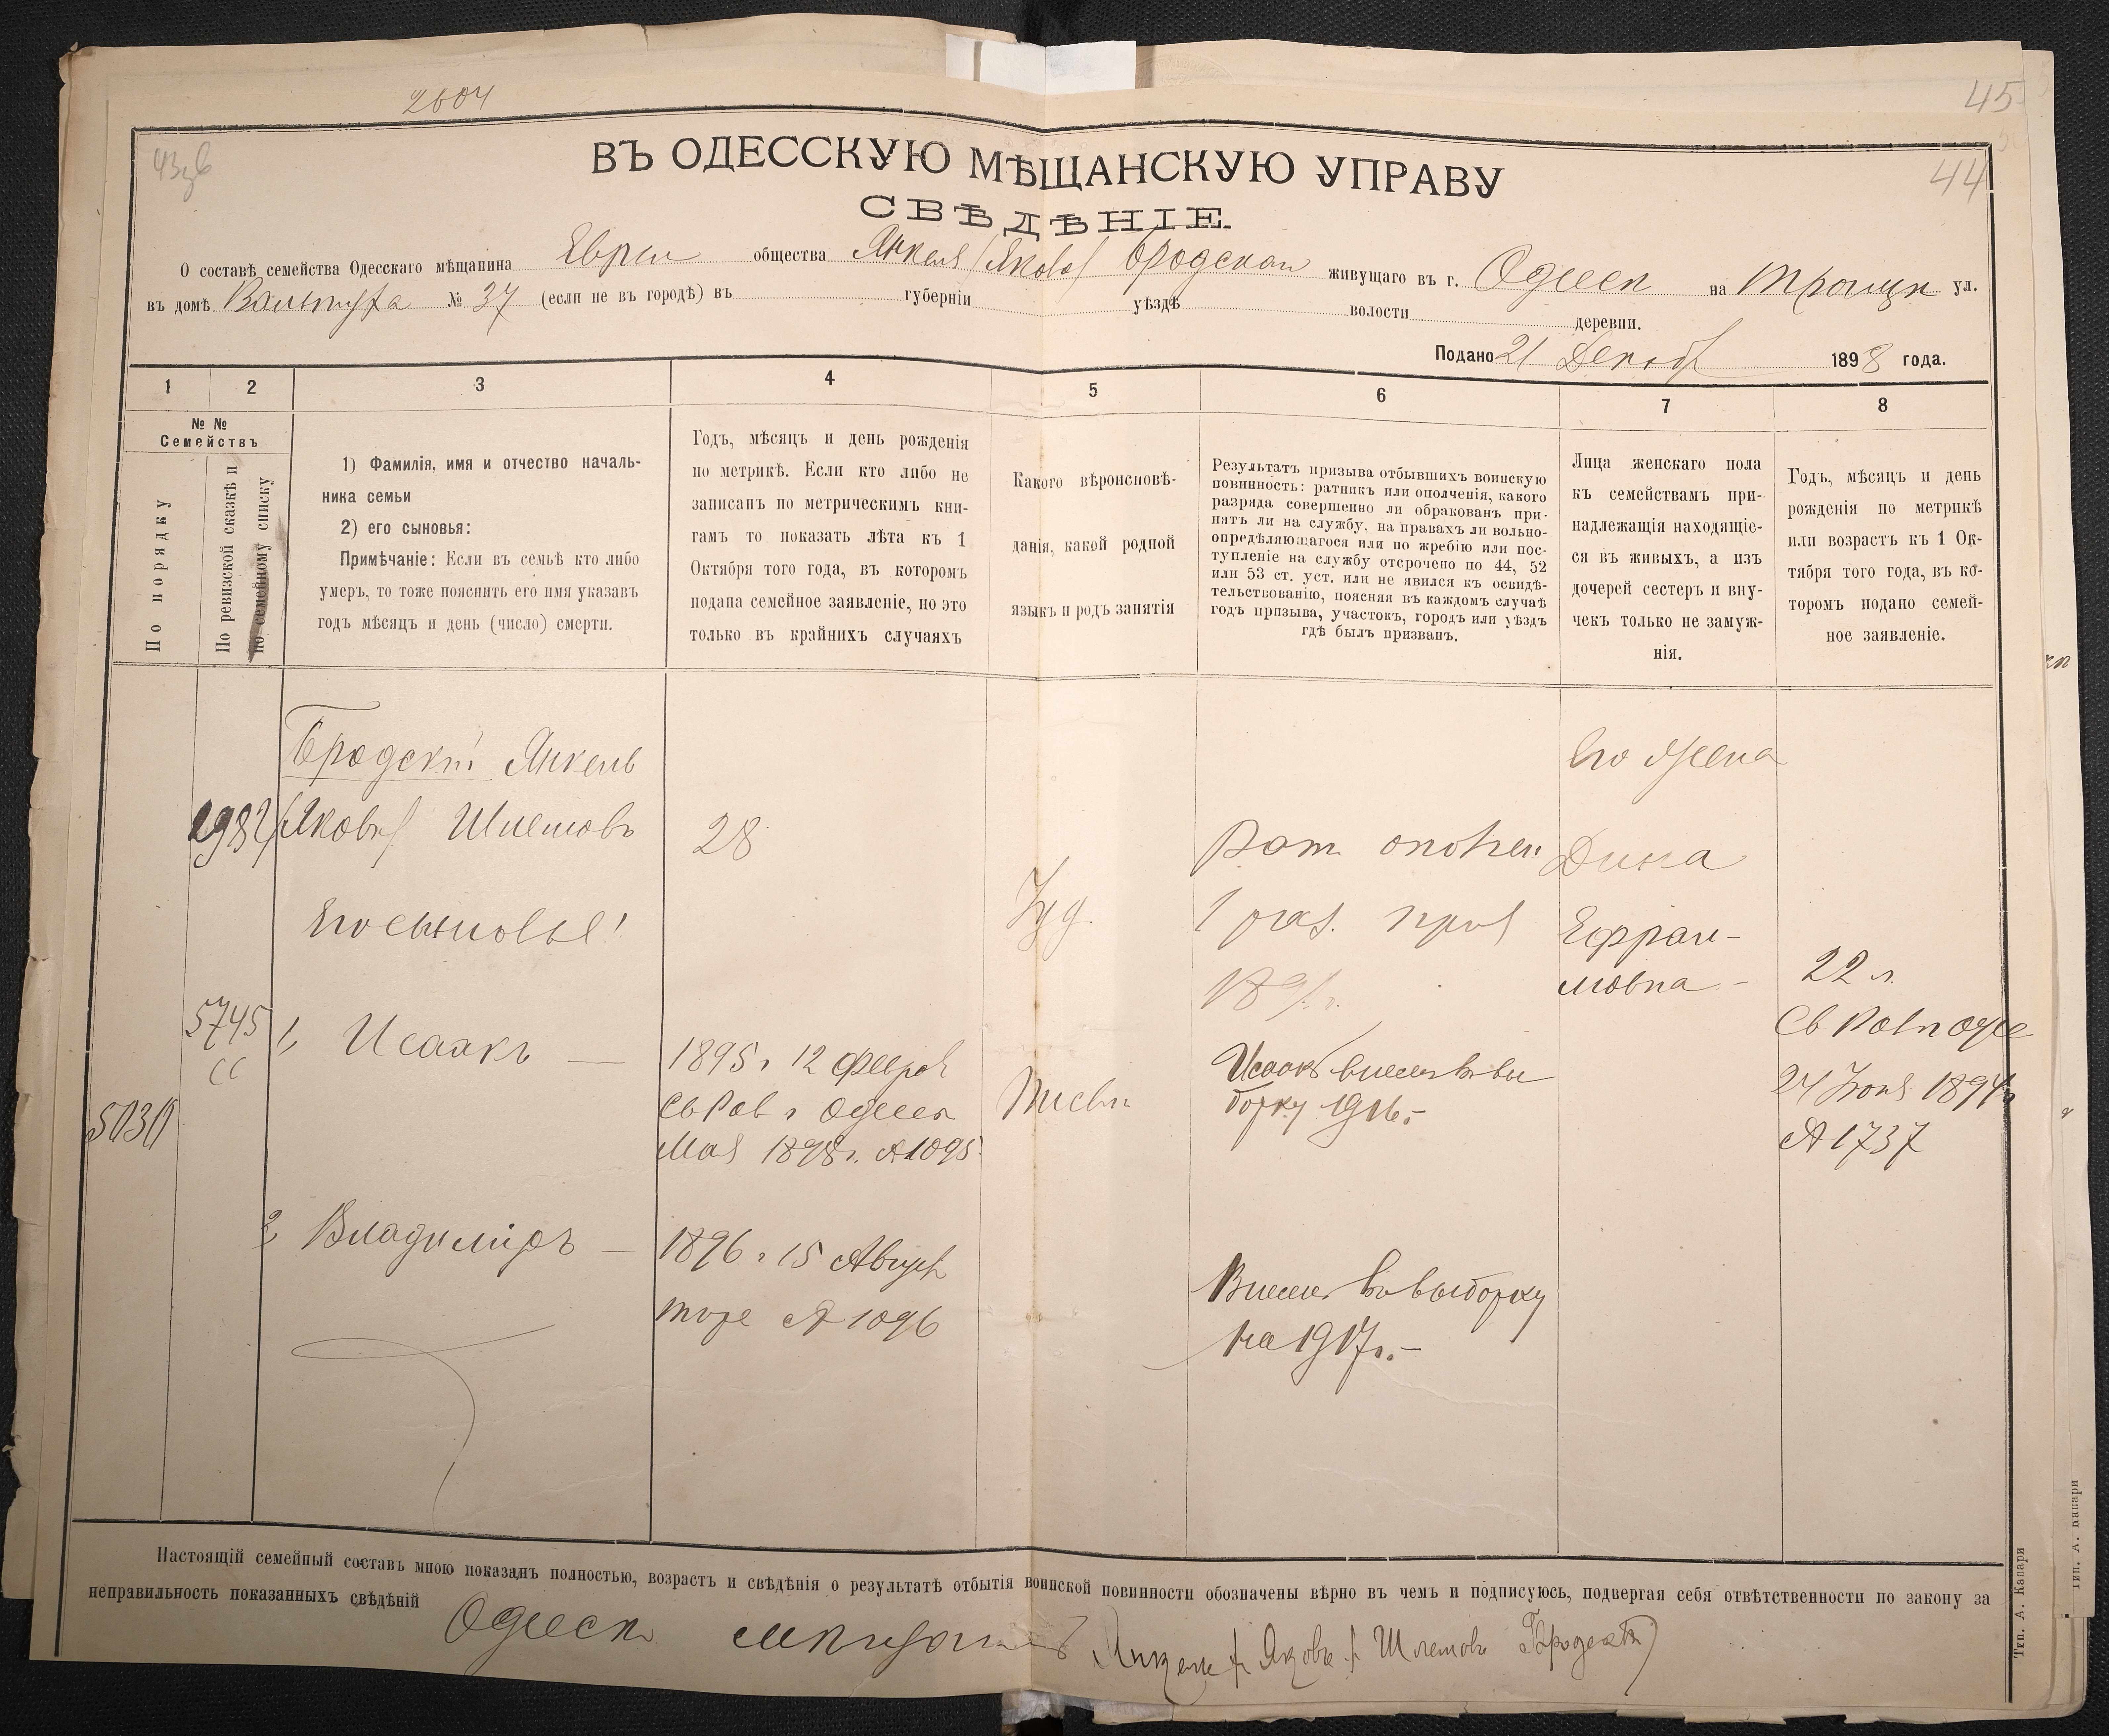 2604
45
44
ВЪ ОДЕССКУЮ МѢЩАНСКУЮ УПРАВУ
СВѢДѢНІЕ.
О составѣ семейства Одесскаго мѣщанина Евреи общества Янкеля (Якова) Бродскаго живущаго въ г. Одесси на Троицк ул.
въ домѣ № 37 (если не въ городѣ) въ губерніи уѣздѣ волости деревни.
Подано 21 Декабр 1898 года.
1 2 3 4 5 6 7 8
№ №
Семействъ
По порядку
По ревизской сказкѣ и
по семейному списку
1) Фамилія, имя и отчество началь-
ника семьи
2) его сыновья:
Примѣчаніе: Если въ семьѣ кто либо
умеръ, то тоже пояснить его имя указавъ
годъ мѣсяцъ и день (число) смерти.
Годъ, мѣсяцъ и день рожденія
по метрикѣ. Если кто либо не
записанъ по метрическимъ кни-
гамъ то показать лѣта къ 1
Октября того года, въ которомъ
подана семейное заявленіе, но это
только въ крайнихъ случаяхъ
Какого вѣроисповѣ-
данія, какой родной
языкъ и родъ занятія
Результатъ призыва отбывшихъ воинскую
повинность: ратникъ или ополченія, какого
разряда совершенно ли обракованъ при-
нятъ ли на службу, на правахъ ли вольно-
опредѣляющагося или по жребію или пос-
тупленіе на службу отсрочено по 44, 52
или 53 ст. уст. или не явился къ освидѣ-
тельствованію, поясняя въ каждомъ случаѣ
годъ призыва, участокъ, городъ или уѣздъ
гдѣ былъ призванъ.
Лица женскаго пола
къ семействамъ при-
надлежащія находящіе-
ся въ живыхъ, а изъ
дочерей сестеръ и вну-
чекъ только не замуж-
нія.
Годъ, мѣсяцъ и день
рожденія по метрикѣ
или возрастъ къ 1 Ок-
тября того года, въ ко-
торомъ подано семей-
ное заявленіе.
Бродскій Янкель
(Яковъ) Шлемовъ
28
Его сыновья:
Іуд.
Рат ополчен
1 раз. приз
189
Его жена
Дина
Ефраи-
мовна -
22 л.
Св Рав г Одес
24 Іюня 1894 г
№ 1737
5745
5030
1, Исаакъ —
1895 г 12 Феврал
Св Рав г Одесса
Мая 1898 г. № 1095
Исаакъ внесенъ въ вы
борку 1916 г.-
2 Владиміръ —
1896 г 15 Август
тоже № 1096
Внесенъ въ выборку
на 1917 г.-
Настоящій семейный составъ мною показанъ полностью, возрастъ и свѣдѣнія о результатѣ отбытія воинской повинности обозначены вѣрно въ чемъ и подписуюсь, подвергая себя отвѣтственности по закону за
неправильность показанныхъ свѣдѣній
Одесск мѣщанинъ Янкель (Яковъ) Шлемовъ Бродскій
Тип. А. Капари
Тип. А. Капари